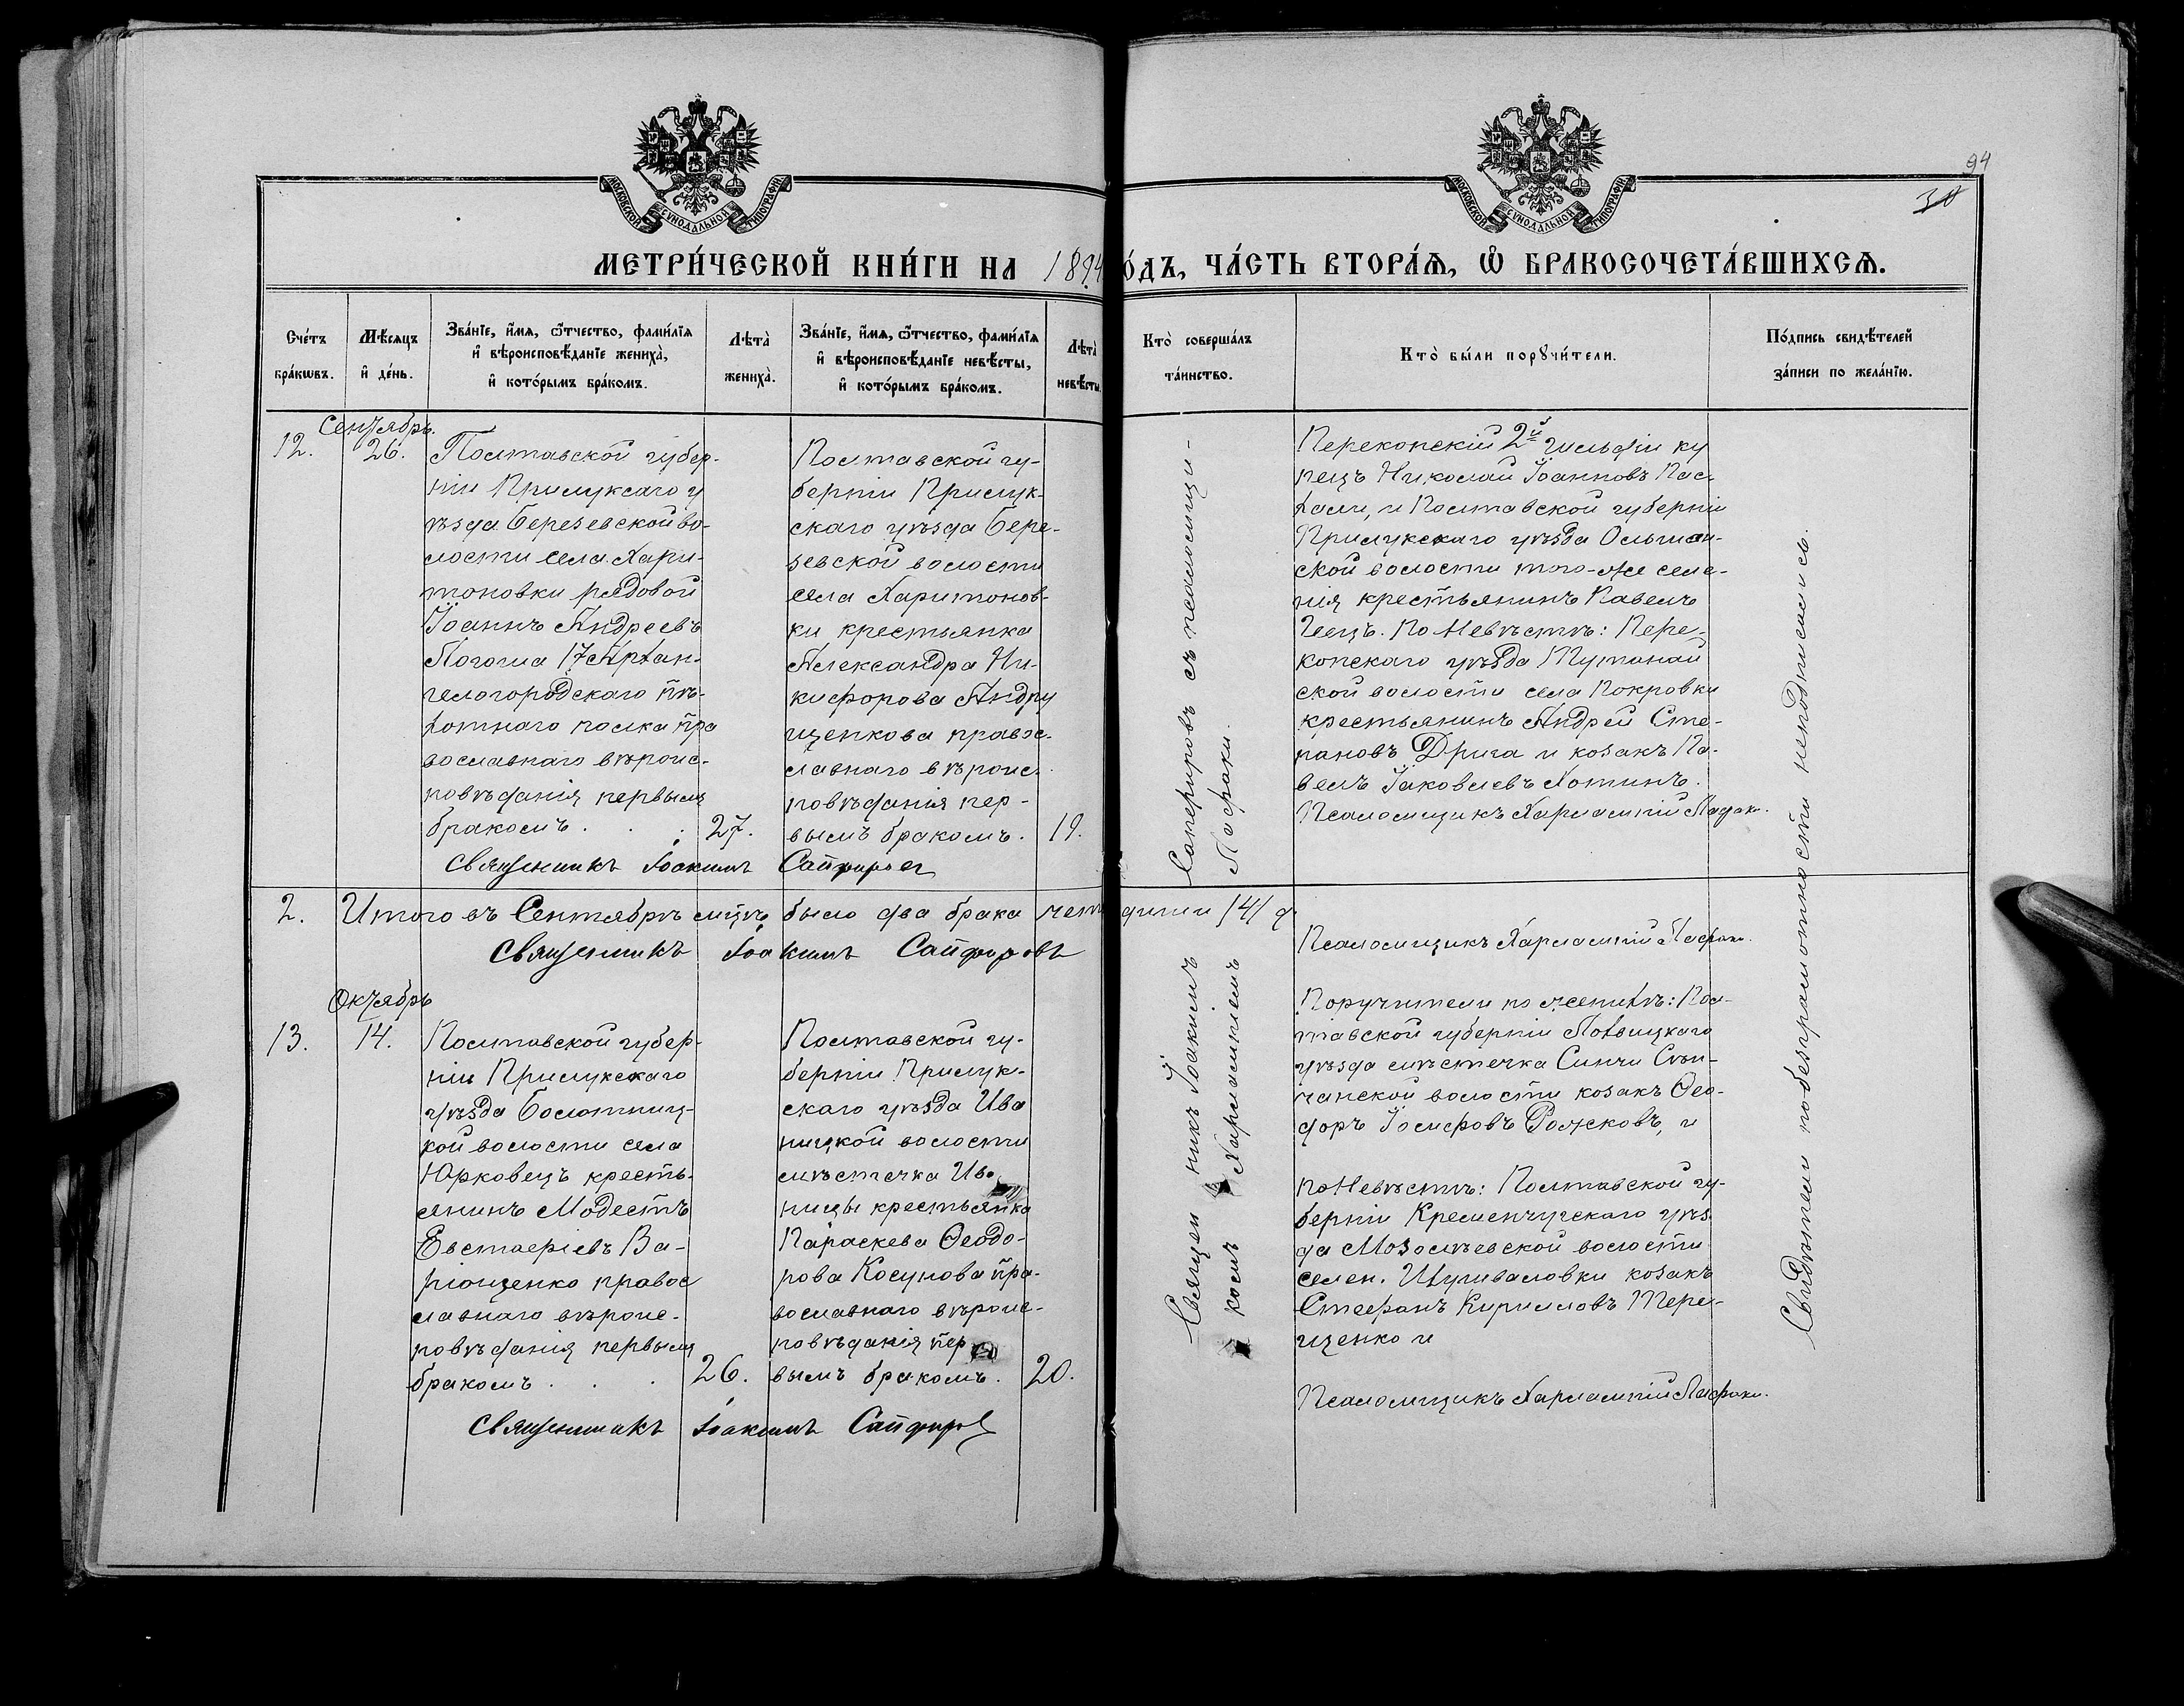 94
30
МОСКОВСКОЙ СУНОДАЛЬНОЙ ТИПОГРАФІИ
МОСКОВСКОЙ СУНОДАЛЬНОЙ ТИПОГРАФІИ
МЕТРИ́ЧЕСКОЙ КНИ́ГИ НА 1894
ОДЪ, ЧА́СТЬ ВТОРА́Я, Ѡ БРАКОСОЧЕТА́ВШИХСЯ.
Сче́тъ
бра́кѡвъ.
Мѣ́сяцъ
и҆ де́нь.
Зва́нїе, и҆́мя, ѻ҆́тчество, фами́лїя
и҆ вѣроисповѣ́данїе жениха̀,
и҆ кото́рымъ бра́комъ.
Лѣта̀
жениха̀.
Зва́нїе, и҆́мя, ѻ҆́тчество, фами́лїя
и҆ вѣроисповѣ́данїе невѣ́сты,
и҆ кото́рымъ бра́комъ.
Лѣта̀
невѣ́сты.
Кто̀ соверша́лъ
та́инство.
Кто̀ бы́ли порꙋчи́тели.
По́дпись свидѣ́телей
за́писи по жела́нїю.
Сентябрь.
12.
26.
Полтавской губер-
ніи Прилукскаго у
ѣзда Березевской во-
лости села Хари-
тоновки рядовой
Іоаннъ Андреевъ
17 Архан-
гелогородскаго пѣ-
хотнаго полка пра
вославнаго вѣроис-
повѣданія первымъ
бракомъ . . .
27.
Полтавской гу-
берніи Прилук-
скаго уѣзда Бере-
зевской волости
села Харитонов-
ки крестьянка
Александра Ни-
кифорова Андру
щенкова правос-
лавнаго вѣроис-
повѣданія пер-
вымъ бракомъ.
19.
Священникъ Іоакимъ Сапфировъ
Перекопскій 2й гильдіи ку
пецъ Николай Іоанновъ Пас-
хали, и Полтавской губерніи
Прилукскаго уѣзда Ольшан-
ской волости того-же селе-
нія крестьянинъ Павелъ
По Невѣстѣ: Пере-
копскаго уѣзда
ской волости села Покровки
крестьянинъ Андрей Сте-
пановъ Дрига и козакъ Па-
велъ Іаковлевъ Хотинъ.
Псаломщикъ Харлампій
2.
Итого въ Сентябрѣ м-цѣ было два брака
Священникъ Іоакимъ Сапфировъ
Псаломщикъ Харлампій
Октябрь
13.
14.
Полтавской губер-
ніи Прилукскаго
уѣзда Болотниц-
кой волости села
Юрковецъ кресть-
янинъ Модестъ
Евстафіевъ Ва-
ріощенко правос
лавнаго вѣроис-
повѣданія первымъ
бракомъ . . .
26.
Полтавской гу-
берніи Прилук-
скаго уѣзда Ива
ницкой волости
мѣстечка Ива
ницы крестьянка
Параскева Ѳеодо-
рова Косунова пра-
вославнаго вѣроис-
повѣданія пер
вымъ бракомъ.
20.
Священникъ Іоакимъ Сапфировъ
Священникъ Іоакимъ Сапфировъ съ псаломщи-
комъ Харлампіемъ
Поручители по женихѣ: Пол-
тавской губерніи Лохвицкаго
уѣзда мѣстечка Синчи Сѣн-
чанской волости козакъ Ѳео-
доръ Іосифовъ Рожковъ, и
по Невѣстѣ: Полтавской гу-
берніи Кременчугскаго уѣз
да Мозолѣевской волости
селен. Шушваловки козакъ
Стефанъ Кирилловъ Тере-
щенко и
Псаломщикъ Харлампій
Свидѣтели по безграмотности неподписались.